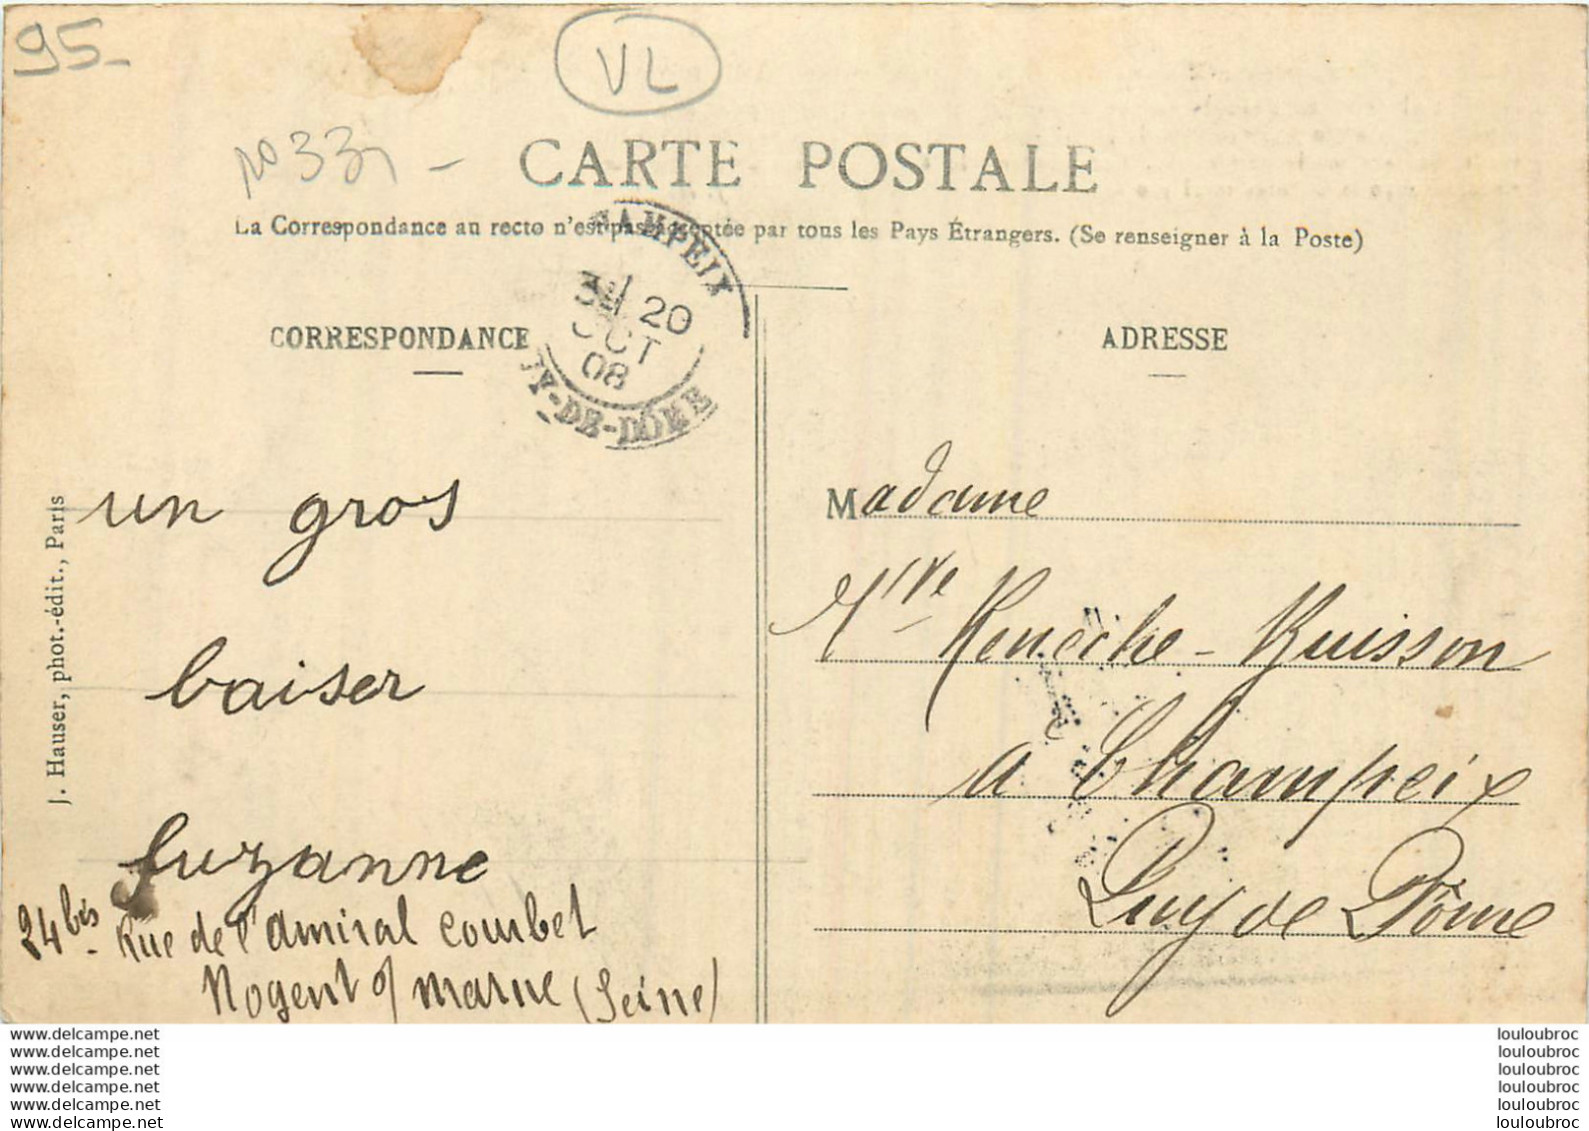 95-
VL
CARTE POSTALE
La Correspondance au recto n'est pas acceptée par tous les Pays Étrangers. (Se renseigner à la Poste)
CORRESPONDANCE
20
OCT
08
PUY-DE-DOME
un gros
baiser
Suzanne
24 bis Rue de l'amiral courbet
Nogent s/ marne (Seine)
J. Hauser, phot.-édit., Paris
ADRESSE
Madame
Vve
a Champeix
Puy de Dôme
www.delcampe.net
www.delcampe.net
www.delcampe.net
www.delcampe.net
www.delcampe.net
www.delcampe.net
louloubroc
louloubroc
louloubroc
louloubroc
louloubroc
louloubroc